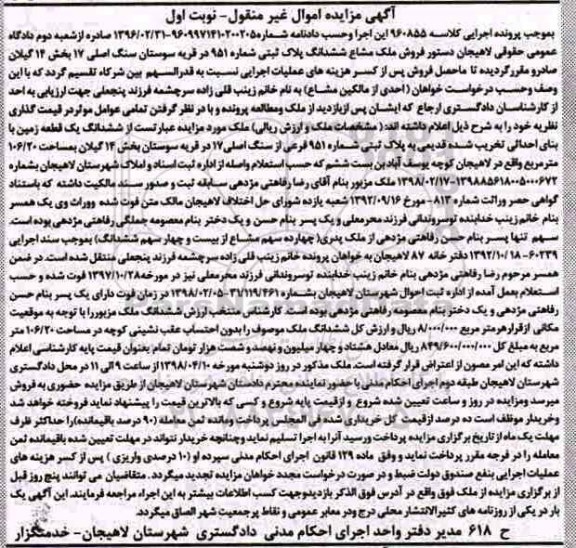 آگهی مزایده اموال غیر منقول- نوبت اول
بموجب پرونده اجرایی کلاسه ۹۶۰۸۵۵ این اجرا وحسب دادنامه شماره ۹۶۰۹۹۷۱۴۱۰۲۰۰۲۰۵-۱۳۹۶/۰۲/۳۱ صادره ازشعبه دوم دادگاه
عمومی حقوقی لاهیجان دستور فروش ملک مشاع ششدانگ پلاک ثبتی شماره ۹۵۱ در قریه سوستان سنگ اصلی ۱۷ بخش ۱۴ گیلان
صادرو مقررگردیده تا ماحصل فروش پس از کسر هزینه های عملیات اجرایی نسبت به قدرالسهم بین شرکاء تقسیم گردد که با این
وصف وحسب درخواست خواهان (احدی از مالکین مشاع) به نام خانم زینب قلی زاده سرچشمه فرزند پنجعلی جهت ارزیابی به احد
از کارشناسان دادگستری ارجاع که ایشان پس ازبازدید از ملک ومطالعه پرونده و با در نظر گرفتن تمامی عوامل موثردر قیمت گذاری
نظریه خود را به شرح ذیل اعلام داشته اند: (مشخصات ملک و ارزش ریالی) ملک مورد مزایده عبارتست از ششدانگ یک قطعه زمین با
بنای احداثی تخریب شده قدیمی به پلاک ثبتی شماره ۹۵۱ فرعی از سنگ اصلی ۱۷ در قریه سوستان بخش ۱۴ گیلان بمساحت ۱۰۶/۲۰
مترمربع واقع در لاهیجان کوچه یوسف آبادبن بست ششم که حسب استعلام واصله از اداره ثبت اسناد و املاک شهرستان لاهیجان بشماره
۱۳۹۸۸۵۶۱۸۰۰۵۰۰۰۶۷۲-۱۳۹۸/۰۲/۱۷ ملک مزبور بنام آقای رضا رفاهتی مژدهی سابقه ثبت و صدور سند مالکیت داشته که باستناد
گواهی حصر وراثت شماره ۸۱۳- مورخ ۱۳۹۲/۰۹/۱۶ شعبه یازده شورای حل اختلاف لاهیجان مالک متن فوت شده ووراث وی یک همسر
بنام خانم زینب خدابنده توسروندانی فرزند محرمعلی و یک پسر بنام حسن و یک دختر بنام معصومه جملگی رفاهتی مژدهی بوده است.
سهم تنها پسر بنام حسن رفاهتی مژدهی از ملک پدری( چهارده سهم مشاع از بیست و چهار سهم ششدانگ) بموجب سند اجرایی
۶۰۲۳۹-۱۳۹۲/۱۰/۱۸ دفتر خانه ۸۷ لاهیجان به خواهان پرونده خانم زینب قلی زاده سرچشمه فرزند پنجعلی منتقل شده است. در ضمن
همسر مرحوم رضا رفاهتی مژدهی بنام خانم زینب خدابنده توسروندانی فرزند محرمعلی نیز در مورخه ۱۳۹۷/۱۰/۲۸ فوت شده و حسب
استعلام بعمل آمده از اداره ثبت احوال شهرستان لاهیجان بشماره ۳۱/۱۱۹/۴۶۱-۱۳۹۸/۰۲/۰۵ در زمان فوت دارای یک پسر بنام حسن
رفاهتی مژدهی و یک دختر بنام معصومه رفاهتی مژدهی بوده است. کارشناس منتخب ارزش ششدانگ ملک مزبوررا با توجه به موقعیت
مکانی ازقرارهرمتر مربع ۸/۰۰۰/۰۰۰ ریال و ارزش کل ششدانگ ملک موصوف را بدون احتساب عقب نشینی کوچه در مساحت ۱۰۶/۲۰ متر
مربع به مبلغ کل ۸۴۹/۶۰۰/۰۰۰ ریال معادل هشتاد و چهار میلیون و نهصد و شصت هزار تومان تمام بعنوان قیمت پایه کارشناسی اعلام
داشته که این امر مصون از اعتراض قرار گرفته است. ملک مذکور در روز دوشنبه مورخه ۱۳۹۸/۰۴/۱۰ از ساعت ۹ الی ۱۱ در محل دادگستری
شهرستان لاهیجان طبقه دوم اجرای احکام مدنی با حضور نماینده محترم دادستان شهرستان لاهیجان از طریق مزایده حضوری به فروش
میرسد ومزایده در روز و ساعت تعیین شده شروع و ازقیمت پایه شروع و کسی که بالاترین قیمت را پیشنهاد نماید فروخته خواهد شد
وخریدار موظف است ده درصد ازقیمت کل خریداری شده فی المجلس پرداخت ومانده ثمن معامله (۹۰ درصد باقیمانده)را حداکثر ظرف
مهلت یک ماه ازتاریخ برگزاری مزایده پرداخت ورسید آنرا به اجرا تسلیم نماید وچنانچه خریدار نتواند در مهلت تعیین شده باقیمانده ثمن
معامله را در فرجه مقرر پرداخت نماید و وفق ماده ۱۲۹ قانون اجرای احکام مدنی سپرده او (۱۰ درصدی واریزی ) پس از کسر هزینه های
عملیات اجرایی بنفع صندوق دولت ضبط و در صورت درخواست مجدد خواهان مزایده تجدید میگردد. متقاضیان می توانند پنج روز قبل
از برگزاری مزایده از ملک فوق واقع در آدرس فوق الذکر بازدیدوجهت کسب اطلاعات بیشتر به این اجراء مراجعه فرمایند. این آگهی یک
بار در یکی از روزنامه های کثیرالانتشار محلی درج ودر معابر عمومی و نقاط پرجمعیت شهر الصاق میگردد.
ح ۶۱۸ مدیر دفتر واحد اجرای احکام مدنی دادگستری شهرستان لاهیجان- خدمتگزار